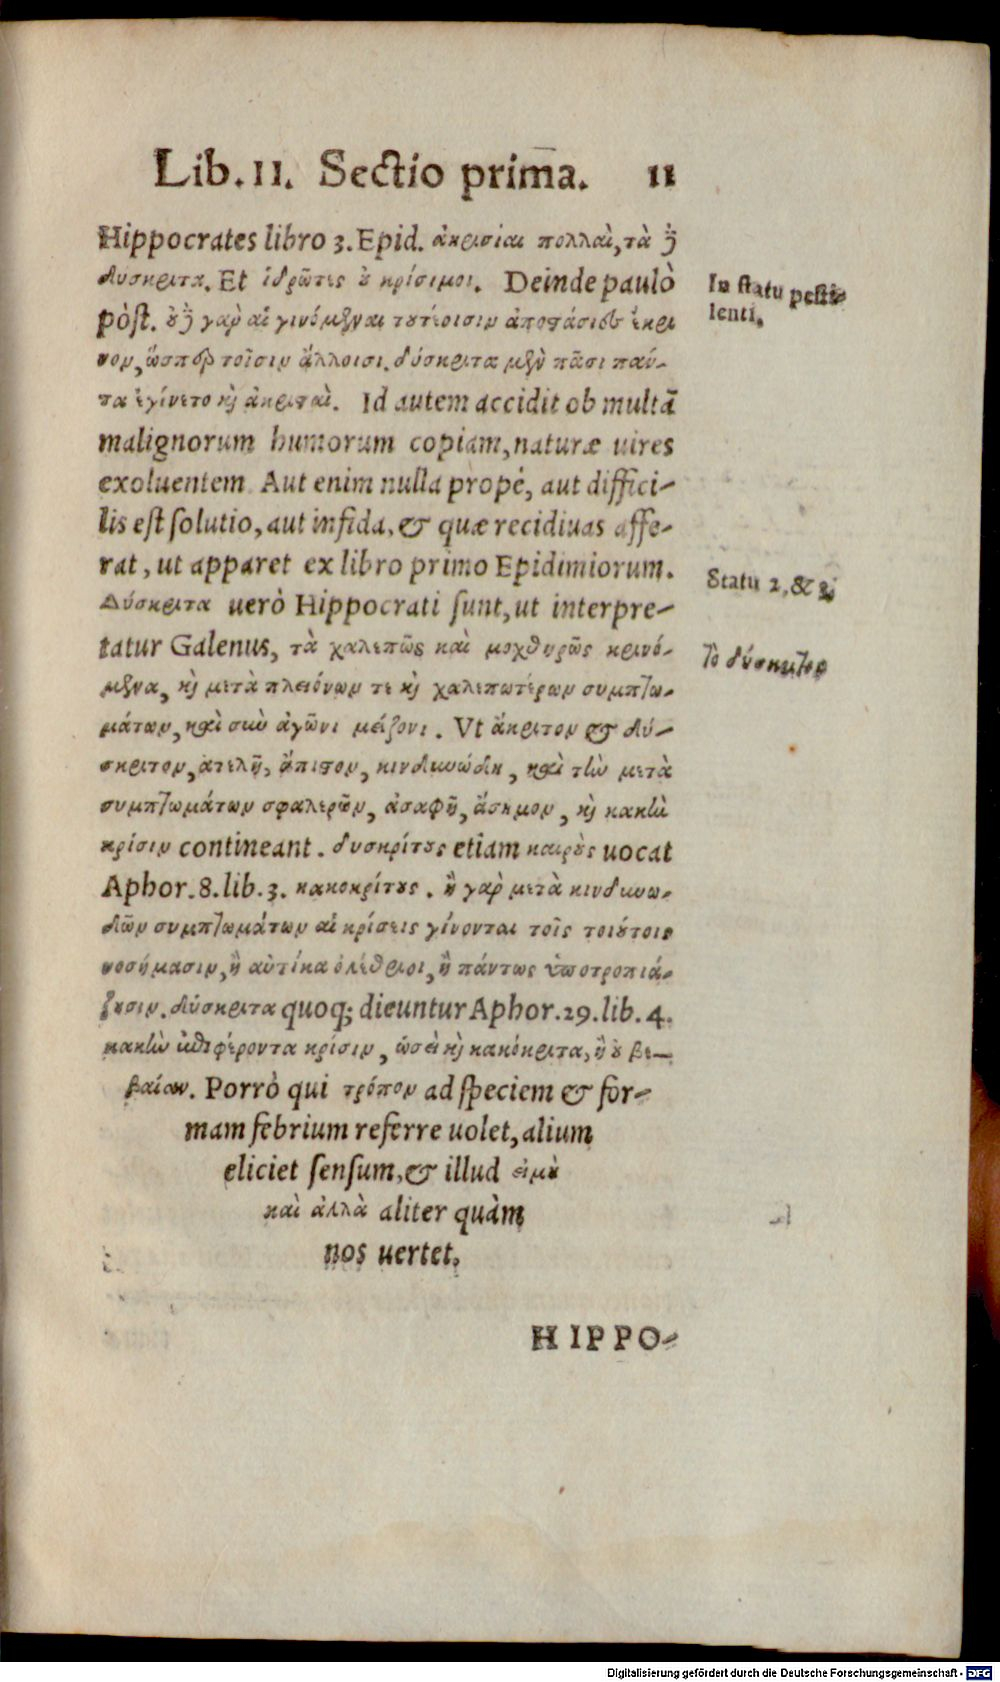 Lib. II. Sectio prima. 11
Hippocrates libro 3. Epid. ἀκρισίαι πολλαὶ, τὰ δὲ
δύσκριτα. Et ἱδρῶτες ȣ κρίσιμοι. Deinde paulò
pòst. ȣδὲ γὰρ αἱ γινόμεναι τȣτέοισιν ἀποστάσιες ἔκρι
νον, ὥσπερ τοῖσιν ἄλλοισι. δύσκριτα μὲν πᾶσι πάν-
τα ἐγίνετο κὶ ἄκριτα. Id autem accidit ob multā
malignorum humorum copiam, naturæ uires
exoluentem. Aut enim nulla propè, aut diffici-
lis est solutio, aut infida, & quæ recidiuas affe-
rat, ut apparet ex libro primo Epidimiorum.
Δύσκριτα uerò Hippocrati sunt, ut interpre-
tatur Galenus, τὰ χαλεπῶς καὶ μοχθηρῶς κρινό-
μενα, κὶ μετὰ πλειόνων τε κὶ χαλεπωτέρων συμπτω-
μάτων, καὶ σὺν ἀγῶνι μείζονι. Vt ἄκριτον & δύ-
σκριτον, ἀτελῆ, ἄπιστον, κινδυνώδη, καὶ τὴν μετὰ
συμπτωμάτων σφαλερῶν, ἀσαφῆ, ἄσημον, κὶ κακὴν
κρίσιν contineant. δυσκρίτȣς etiam καιρȣ̀ς uocat
Aphor. 8. lib. 3. κακοκρίτȣς. ἢ γὰρ μετὰ κινδυνω-
δῶν συμπτωμάτων αἱ κρίσεις γίνονται τοῖς τοιȣ́τοις
νοσήμασιν, ἢ αὐτίκα ὀλέθριοι, ἢ πάντως ὑποτροπιά-
ζȣσιν. δύσκριτα quoq; dicuntur Aphor. 29. lib. 4.
κακὴν ἐπιφέροντα κρίσιν, ὡσεὶ κὶ κακόκριτα, ἢ ȣ βε-
βαίαν. Porrò qui τρόπον ad speciem & for-
mam febrium referre uolet, alium
eliciet sensum, & illud ἐμȣ̀
καὶ ἀλλὰ aliter quàm
nos uertet.
HIPPO-
In statu pesti-
lenti.
Statu 2. & 3.
Τὸ δύσκριτον
Digitalisierung gefördert durch die Deutsche Forschungsgemeinschaft - DFG